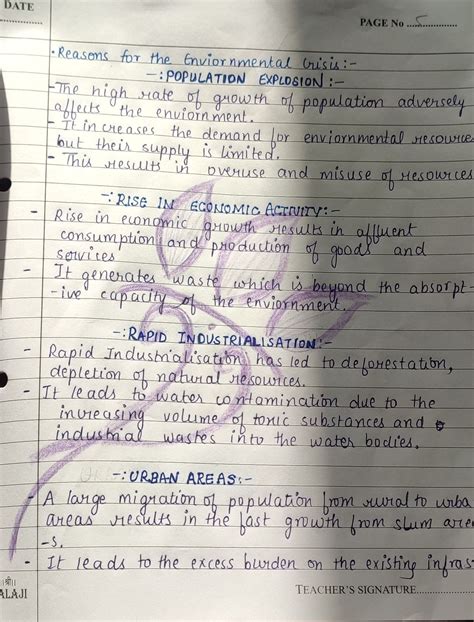 DATE
PAGE No 5
• Reasons for the Enviornmental Crisis:-
-: POPULATION EXPLOSION :-
- The high rate of growth of population adversely
affects the enviornment.
- It increases the demand for enviornmental resource
but their supply is limited.
- This results in overuse and misuse of resources
-: RISE IN ECONOMIC ACTIVITY:-
- Rise in economic growth results in affluent
consumption and production of goods and
services
- It generates waste which is beyond the absorpt-
-ive capacity of the enviornment.
-: RAPID INDUSTRIALISATION:-
- Rapid Industrialisation has led to deforestation,
depletion of natural resources.
- It leads to water contamination due to the
increasing volume of toxic substances and
industrial wastes into the water bodies.
-: URBAN AREAS:-
- A large migration of population from rural to urba
areas results in the fast growth from slum are
-s.
- It leads to the excess burden on the existing infras
।।श्री।।
ALAJI
TEACHER'S SIGNATURE